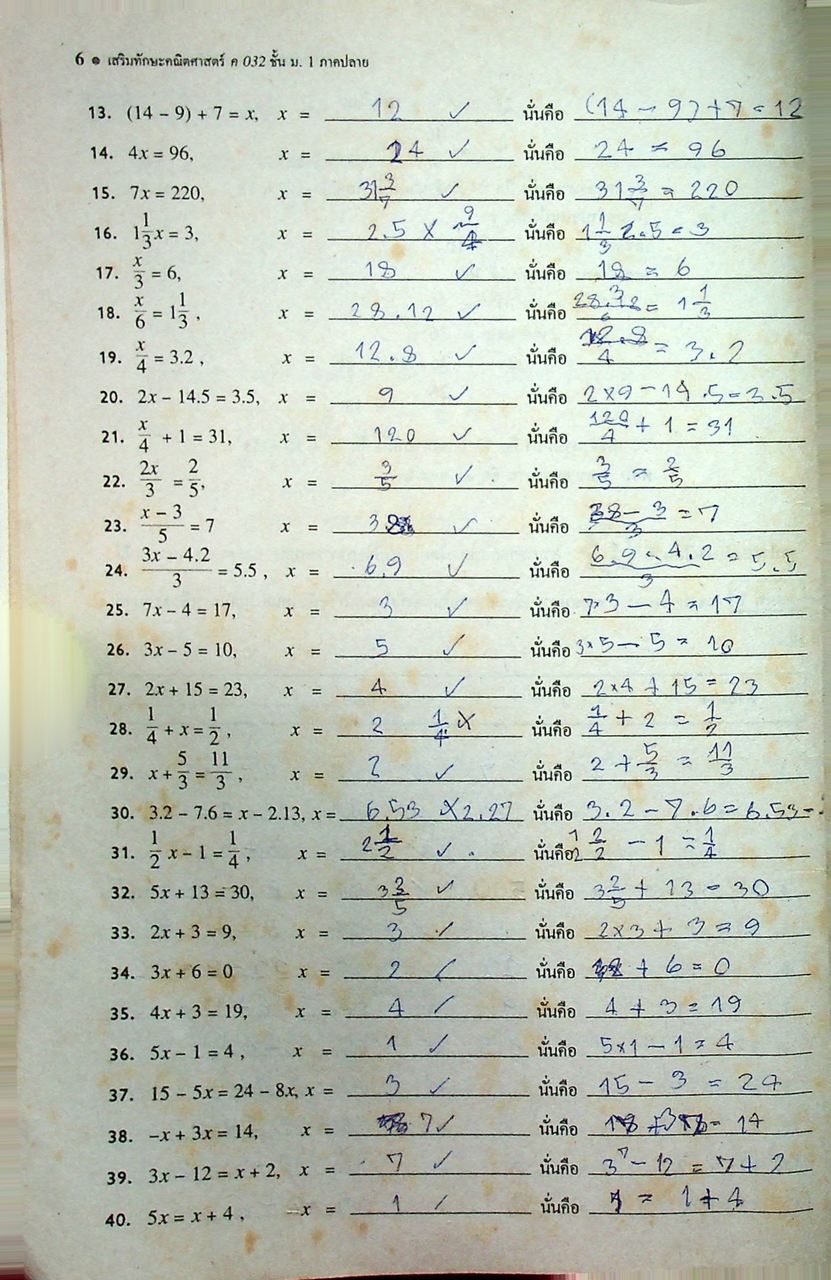 6 ๏ เสริมทักษะคณิตศาสตร์ ค 032 ชั้น ม. 1 ภาคปลาย
13. (14 – 9) + 7 = x, x = 12 ✓ นั่นคือ (14 – 9) + 7 = 12
14. 4x = 96, x = 24 ✓ นั่นคือ 24 = 96
15. 7x = 220, x = 31 3/7 ✓ นั่นคือ 31 3/7 = 220
16. 1 1/3 x = 3, x = 2.5 ✗ 9/4 นั่นคือ 1 1/3 2.5 = 3
17. x/3 = 6, x = 18 ✓ นั่นคือ 18 = 6
18. x/6 = 1 1/3 , x = 28.12 ✓ นั่นคือ = 1 1/3
19. x/4 = 3.2 , x = 12.8 ✓ นั่นคือ 12.8/4 = 3.2
20. 2x – 14.5 = 3.5, x = 9 ✓ นั่นคือ 2×9 – 14.5 = 3.5
21. x/4 + 1 = 31, x = 120 ✓ นั่นคือ 120/4 + 1 = 31
22. 2x/3 = 2/5, x = 3/5 ✓ นั่นคือ 3/5 = 2/5
23. (x – 3)/5 = 7 x = 38 ✓ นั่นคือ (38 – 3)/3 = 7
24. (3x – 4.2)/3 = 5.5 , x = 6.9 ✓ นั่นคือ (6.9 – 4.2)/3 = 5.5
25. 7x – 4 = 17, x = 3 ✓ นั่นคือ 7×3 – 4 = 17
26. 3x – 5 = 10, x = 5 ✓ นั่นคือ 3×5 – 5 = 10
27. 2x + 15 = 23, x = 4 ✓ นั่นคือ 2×4 + 15 = 23
28. 1/4 + x = 1/2 , x = 2 1/4 ✗ นั่นคือ 1/4 + 2 = 1/2
29. x + 5/3 = 11/3 , x = 2 ✓ นั่นคือ 2 + 5/3 = 11/3
30. 3.2 – 7.6 = x – 2.13, x = 6.53 ✗ 2.27 นั่นคือ 3.2 – 7.6 = 6.53 –
31. 1/2 x – 1 = 1/4 , x = 2 1/2 ✓ นั่นคือ – 1 = 1/4
32. 5x + 13 = 30, x = 3 2/5 ✓ นั่นคือ 3 2/5 + 13 = 30
33. 2x + 3 = 9, x = 3 ✓ นั่นคือ 2×3 + 3 = 9
34. 3x + 6 = 0 x = 2 ✓ นั่นคือ + 6 = 0
35. 4x + 3 = 19, x = 4 ✓ นั่นคือ 4 + 3 = 19
36. 5x – 1 = 4 , x = 1 ✓ นั่นคือ 5×1 – 1 = 4
37. 15 – 5x = 24 – 8x, x = 3 ✓ นั่นคือ 15 – 3 = 24
38. –x + 3x = 14, x = 7 ✓ นั่นคือ = 14
39. 3x – 12 = x + 2, x = 7 ✓ นั่นคือ 3 7 – 12 = 7 + 2
40. 5x = x + 4 , x = 1 ✓ นั่นคือ = 1 + 4